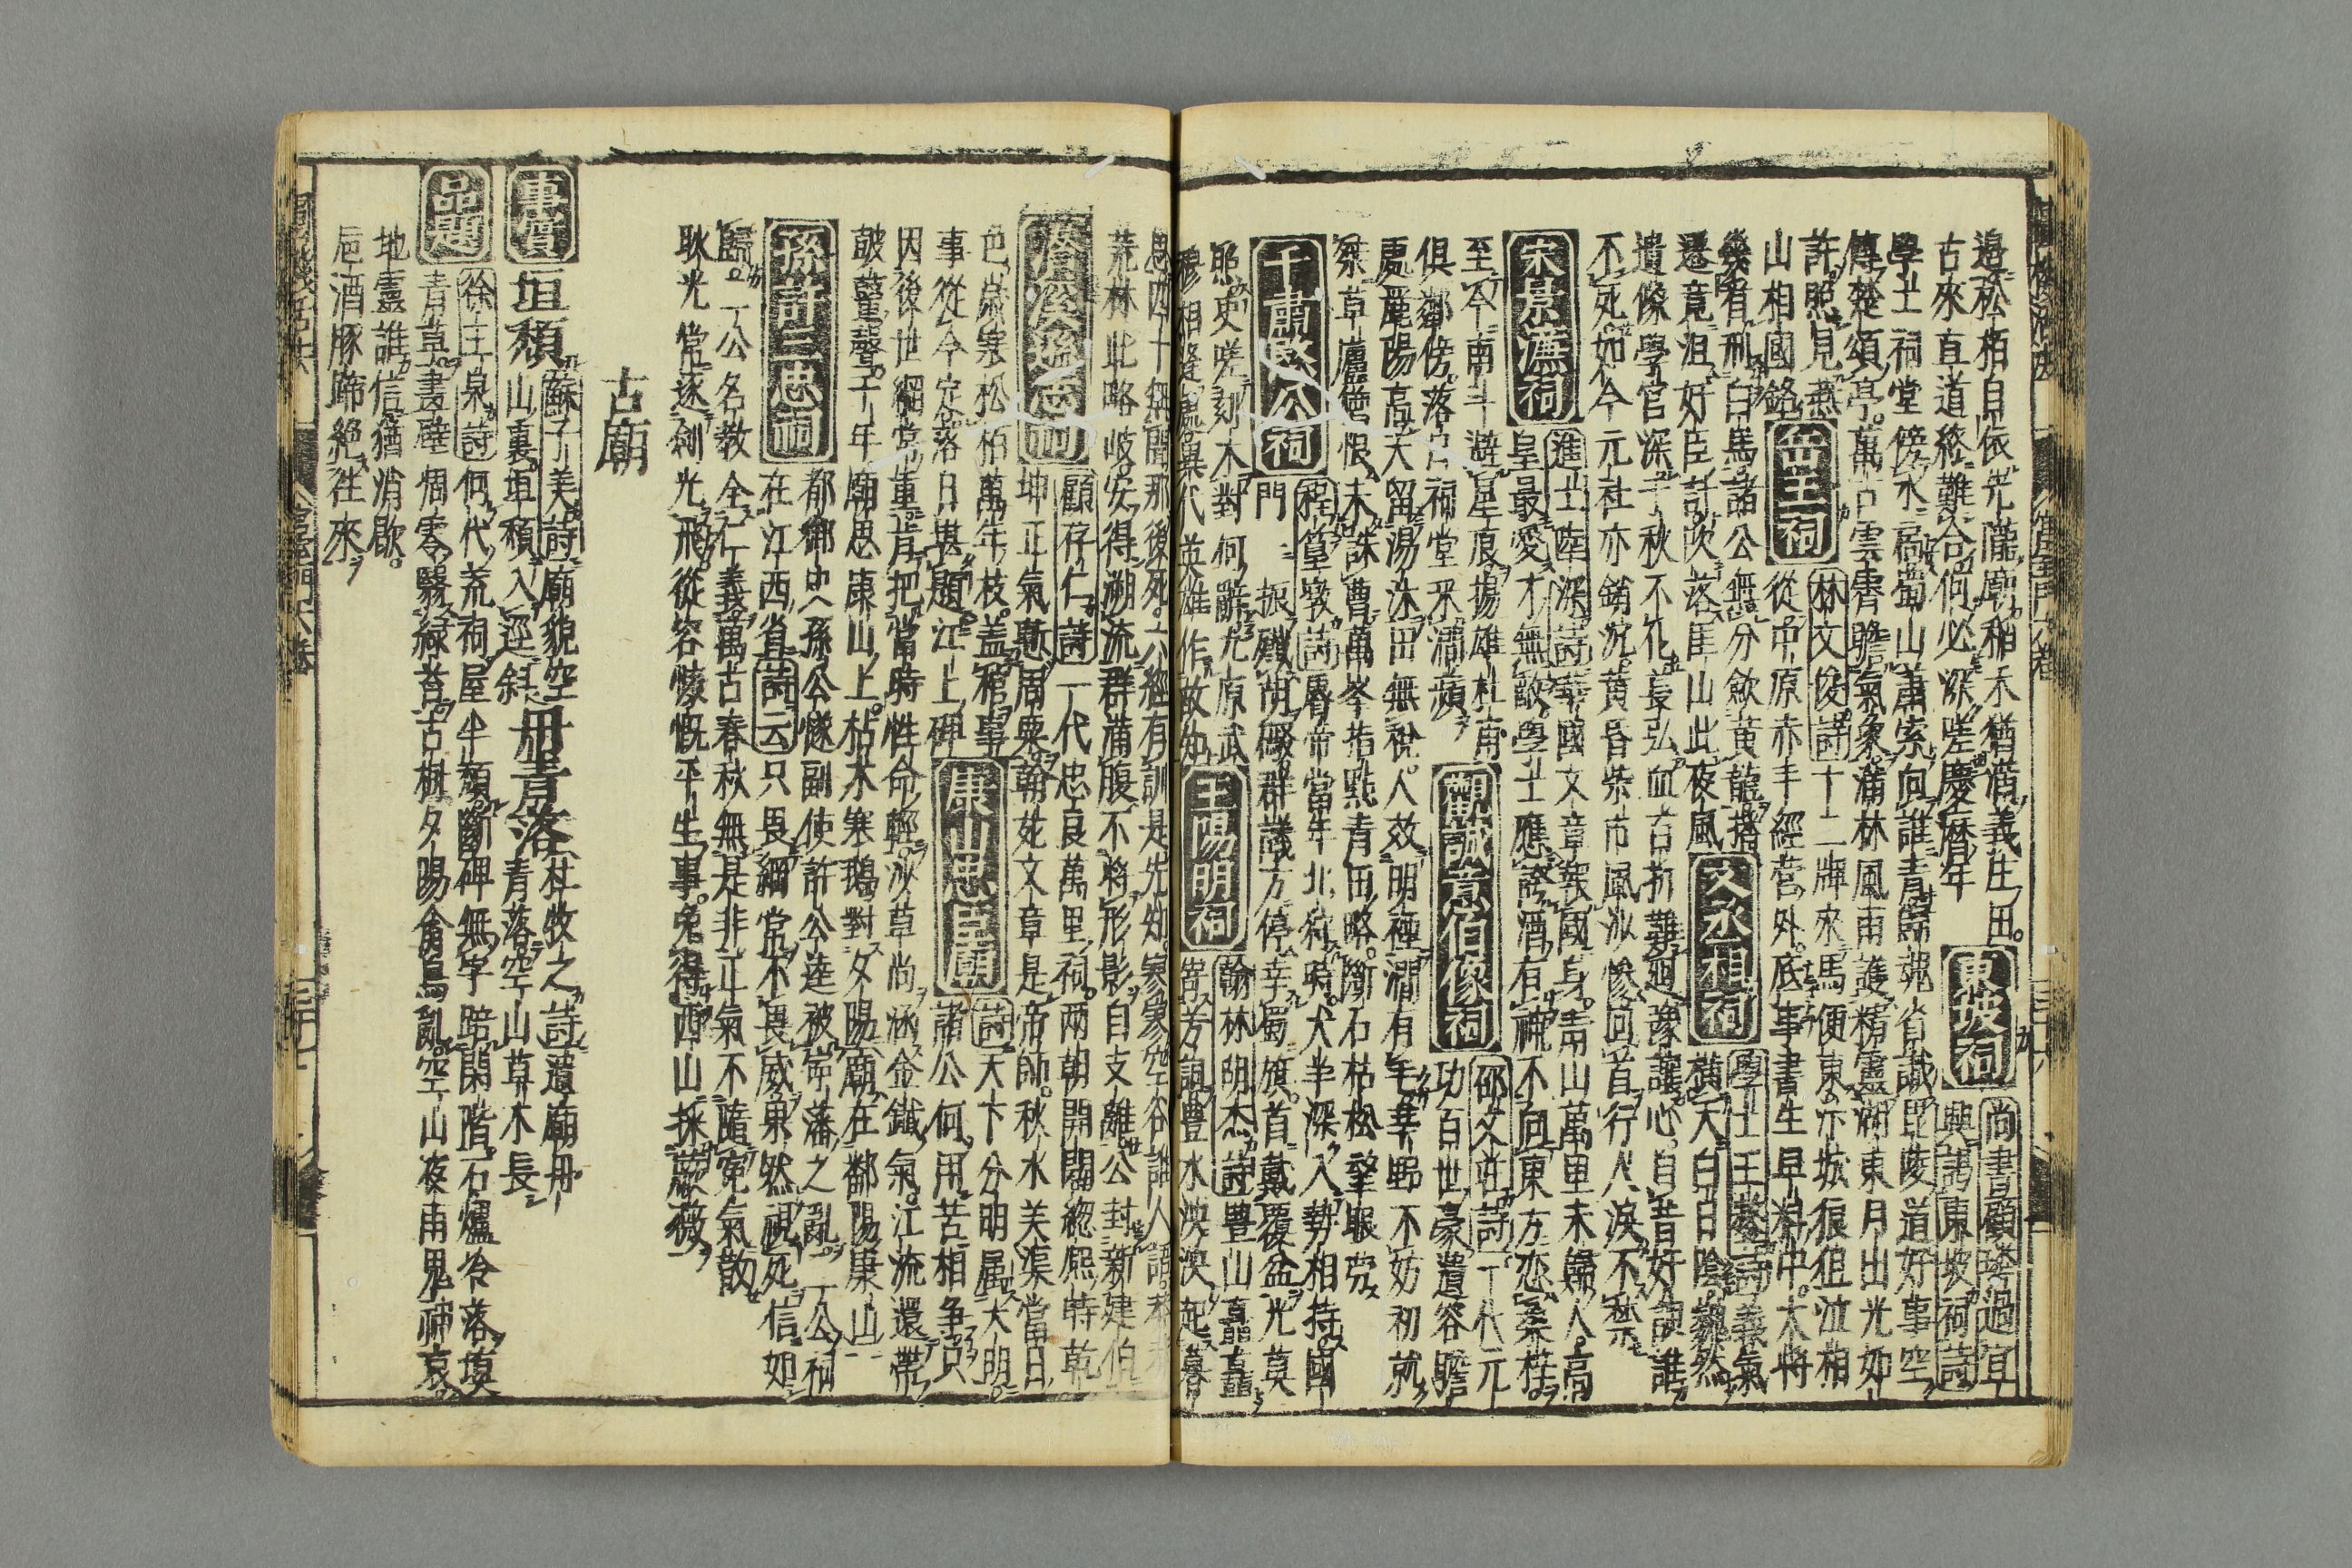 邉松栢自依先隴廟稻禾猶滿義庄田東坡祠尚書顧璘過宜
古來直道終難合何必深嗟慶曆年興謁東坡祠詩
學士祠堂傍水扃蜀山蕭索向誰青歸魂省識毘陵道好事空
傳楚頌亭萬古雲霄瞻氣象滿林風雨護精靈湖東月出光如
許照見岳王祠林文俊詩十二牌來馬便東亦坂狼狙泣相
山相國銘從中原赤手經營外底事書生早料中太將
幾有刑白馬諸公無分飲黃龍文丞相祠學士王鏊詩義氣
遷竟沮好臣計吹落厓山此夜風橫天白日陰巍然
遺像學官深千秋不化萇弘血百折難廻豫讓心自昔好謀誰
不死如今元社亦銷沉黃昏柴市風沙慘回首行人淚不禁
宋景濂祠進士陸深詩華國文章報國身靑山萬里未歸人高
皇最愛才無敵學士應誇酒有神不向東方戀桑梓
至今南斗避星痕揚雄杜甫觀誠意伯像祠邵文莊詩一代元
俱鄰傍落日祠堂采澗蘋功百世豪遺容瞻
處麗陽高天留湯沐田無稅人效明禋澗有毛莘野不妨初就
蔡草廬曾恨未誅曹萬岑指點青田略斷石枯松望眼勞
于肅愍公祠程篁墩詩曆帝當年北狩時犬羊深入勢相持國
門一振殲胡礙群議方停幸蜀旗首戴覆盆光莫
照史嗟刻木對何辭尤原武王陽明祠翰林陰杰詩豊山矗矗
穆相逢處異代英雄作故知笴芳詞豊水泱泱起暮
思四十無聞那後死六經有訓是先知家象空谷誰人語
荒林此略岐安得溯流群滿腹不將形影自支離公封新建伯
顧存仁詩一代忠良萬里祠兩朝開闢總熈時乾
坤正氣慙周粟翰苑文章是帝師秋水美渠當日
色歲寒松栢萬年枝蓋棺事康山忠臣廟詩天下分明属大明
事從今定落日堪題江上碑諸公何用苦相争只
因後世綱常重肯把當時性命輕沙草尚涵金鐵氣江流還帶
鼓鼙聲千年廟思康山上枯木寒鵶對夕陽廟在鄱陽康山
孫許二忠祠都御史孫公燧副使許公逵被寧藩之亂二公祠
在江西省詩云只畏綱常不畏威東然視死信如
歸二公名教全仁義萬古春秋無是非正氣不隨寃氣散
耿光常逐劍光飛從容慷慨平生事免得西山採蕨薇
古廟
事實垣頽蘇子美詩廟貌空山裏垣頽入逕斜丹青落杜牧之詩遺廟丹青落空山草木長
品題徐王泉詩何代荒祠屋半頽斷碑無字踣閑階石爐冷落塡
青草畫壁凋零翳綠苔古樹夕陽禽鳥亂空山夜雨鬼神哀
地靈誰信猶消歇
巵酒豚蹄絶徃來